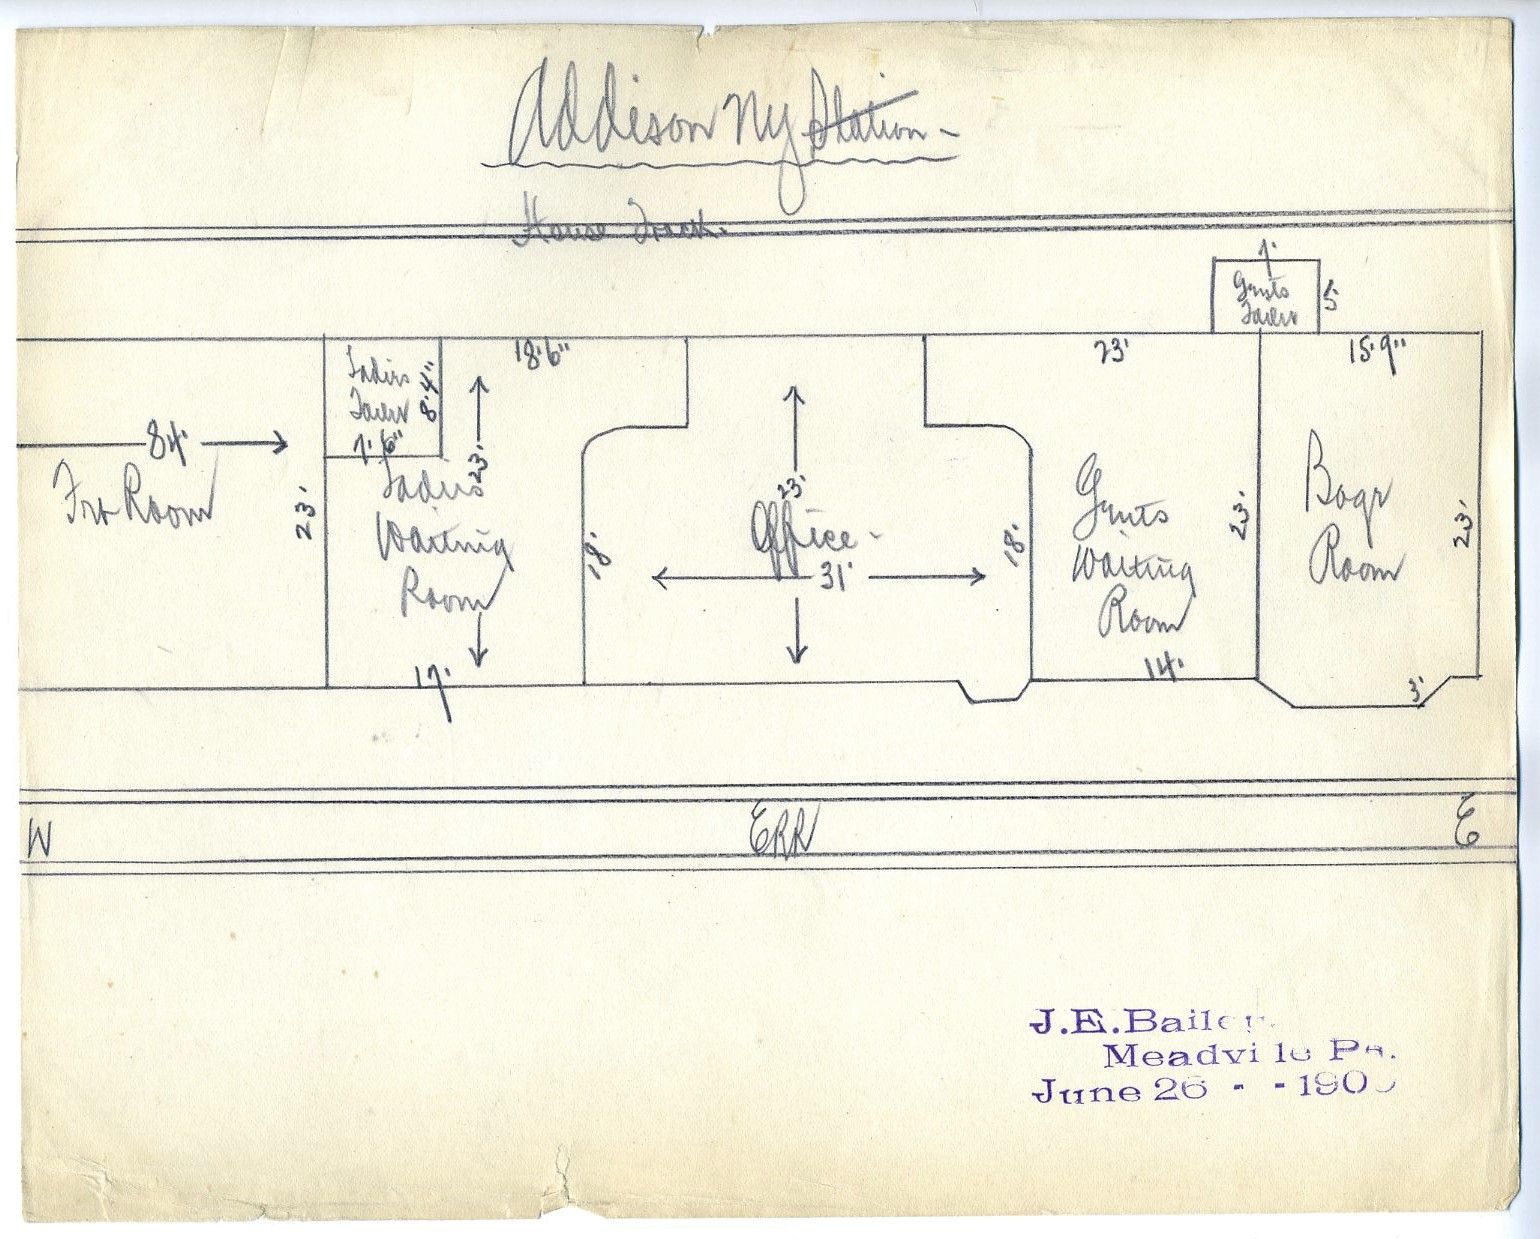 Addison NY Station -
House Track.
7'
Gents
Toilet
5'
18'6"
23'
15'9"
Ladies
Toilet
8'4"
7'6"
84'
Frt Room
23'
Ladies
Waiting
Room
23'
17'
18'
23'
Office -
31'
18'
Gents
Waiting
Room
14'
23'
Bagg
Room
23'
3'
W
ERR
E
J.E.Bailey.
Meadville Pa.
June 26 - - 190